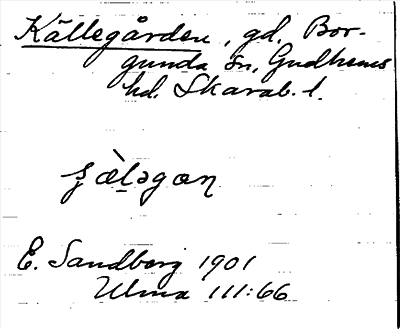 Källegården, gd, Bor-
gunda sn, Gudhems
hd. Skarab. l.
E. Sandberg 1901
Ulma 111:66